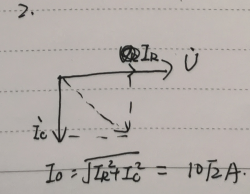 2.
I_R U̇
İ_C
I_0 = √(I_R² + I_C²) = 10√2 A.